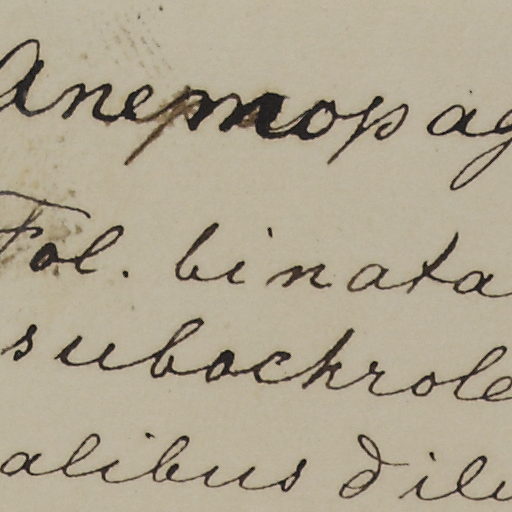 Anemopag
Fol. binata
subochrole
alibus dilu